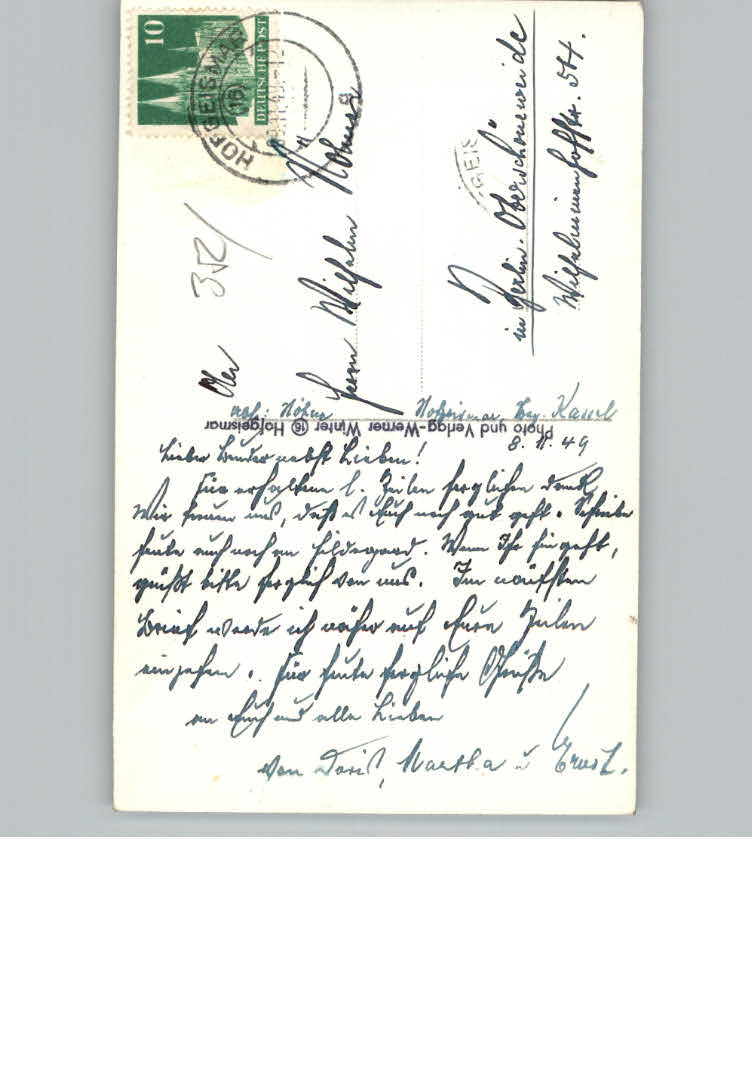 10
DEUTSCHE POST
HOFGEISMAR
(16)
GEIS
Herrn Wilhelm Höhne
in Berlin-Oberschöneweide
Wilhelminenhofstr.
Abs: Höhne
Hofgeismar, Bez. Kassel
Photo und Verlag Werner Winter (16) Hofgeismar
8. 11. 49
Lieber Bruder nebst Lieben!
Für erhaltene l. Zeilen herzlichen Dank.
Wir freuen uns, daß es Euch noch gut geht. Schreibe
heute auch noch an Hildegard. Wenn Ihr hingeht,
grüßt bitte herzlich von uns. Im nächsten
Brief werde ich näher auf Eure Zeilen
eingehen. Für heute herzliche Grüße
an Euch und alle Lieben
von Doris, Martha u Ernst.